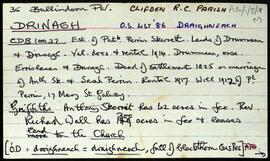 36 Ballindoon Ph. CLIFDEN R.C. PARISH
DRINAGH O.S. LIST 86 DRAIGHNEACH
CDB (1002?). Est. of Patk Perin Skerrett. Lands of Drumman
& Drinagh. Val. docs & rental 1914. Drumman, ease
Errislanan & Drinagh. Deed of Settlement 1825 on marriage
of Anth. Sk. & Sarah Perin. Rental 1917. Will 1912 of P.k
Perin, 17 May St. Galway.
Griffiths Anthony Skerrett has 62 acres in fee. Rev.
Richard Wall has acres in fee & leases
land
more to the Church
OD: draighneach = draigheneach, full of blackthorn